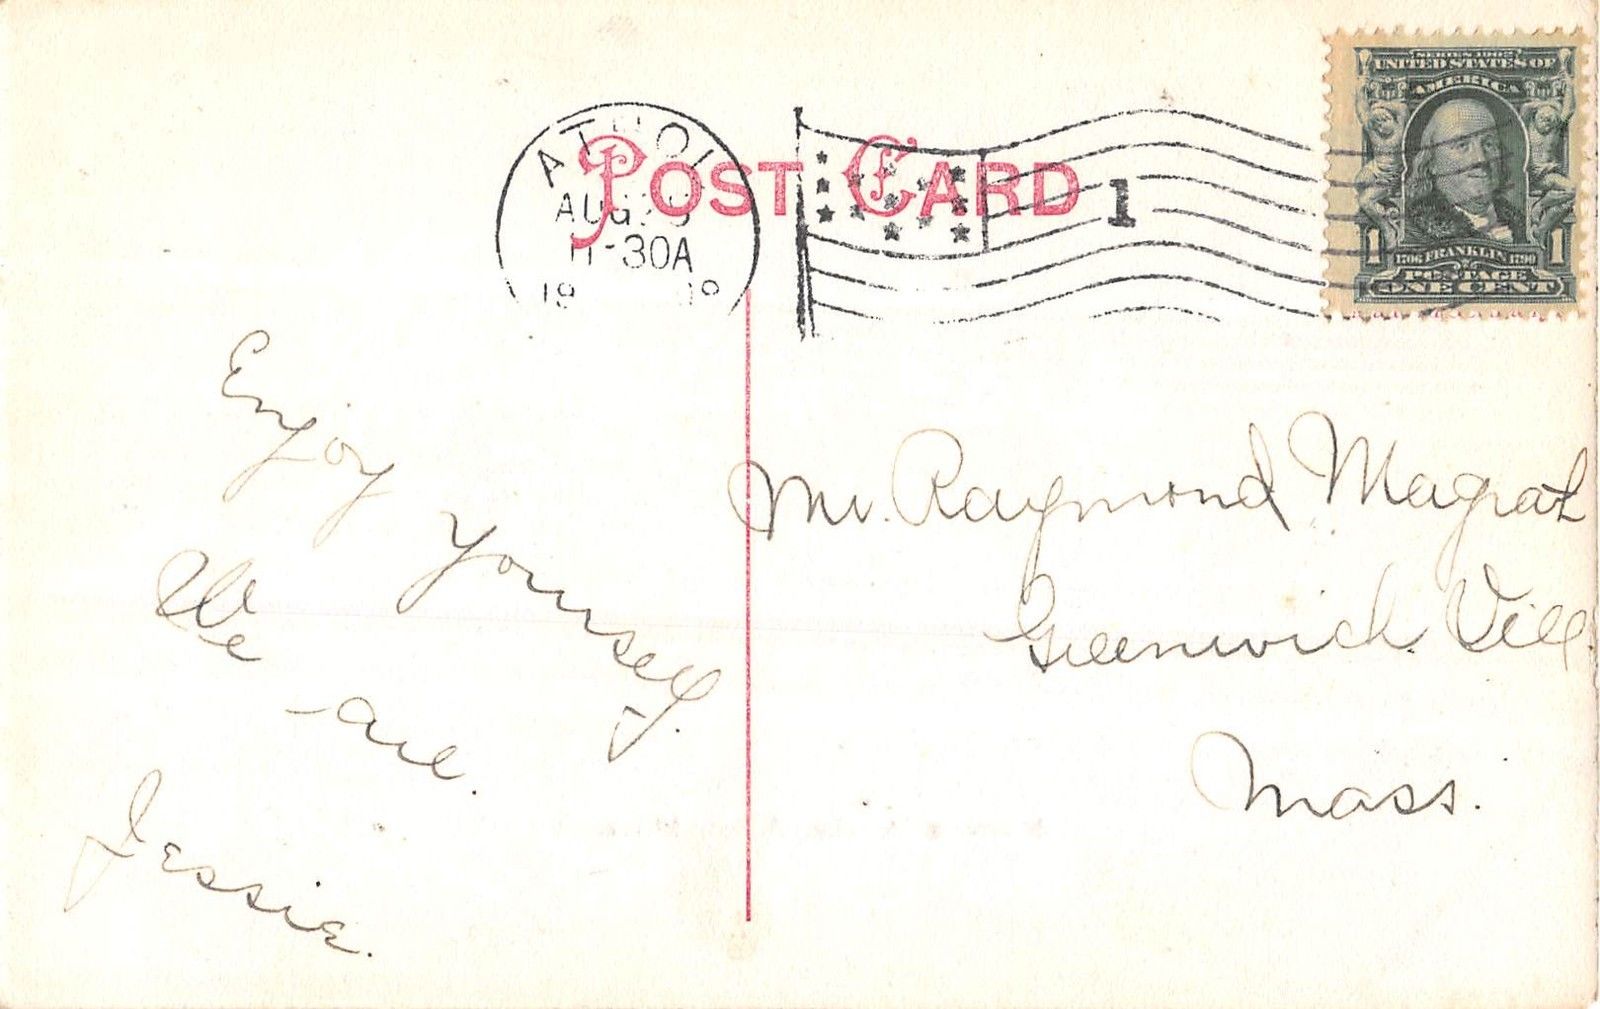 POST CARD
ATHOL
AUG
11-30A
19
1
SERIES 1902
UNITED STATES OF
AMERICA
1 1
1706 FRANKLIN 1790
POSTAGE
ONE CENT
Enjoy
yourself.
We
are.
Jessie.
Mr. Raymond Magrat
Greenwich. Vill.
Mass.